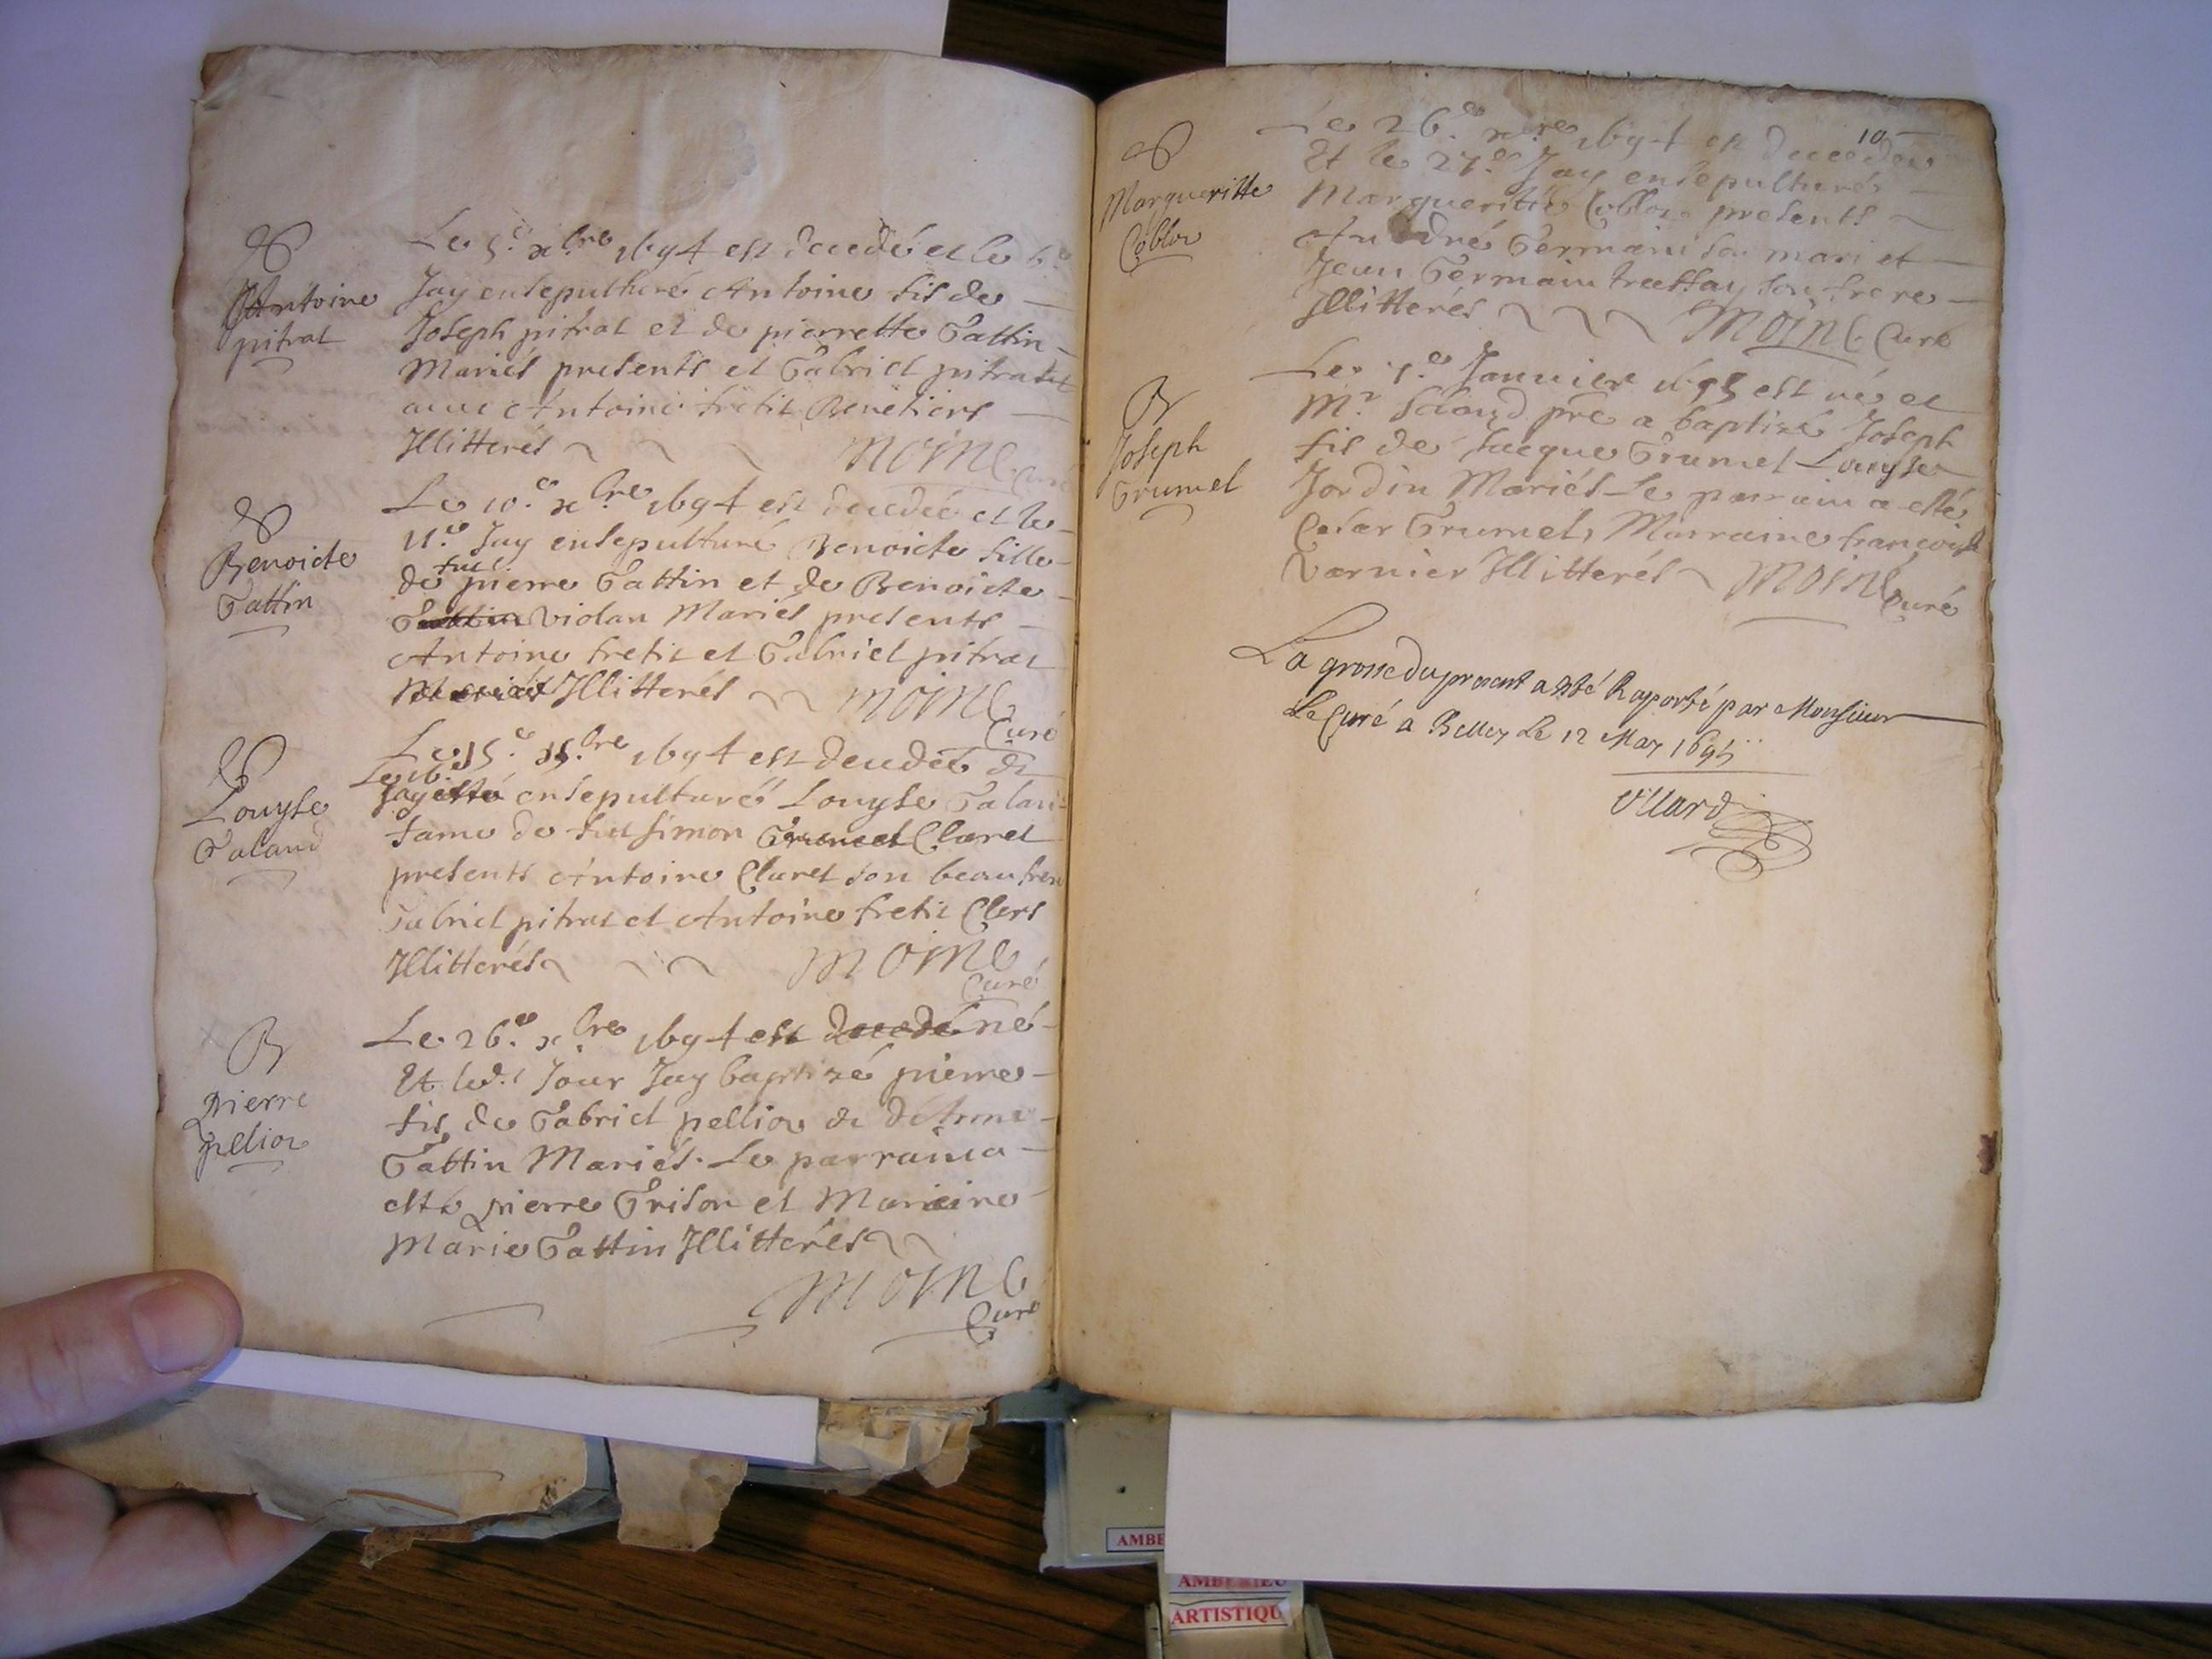 Antoine
pitrat
Le 5.e xbre 1694 est decedé et le 6.e
Jay ensepulturé Antoine fis de
Joseph pitrat et de pierrette Gattin
Mariés presents et Gabriel pitrat
avec Antoine fretit Benetiers
Illitterés Moine Curé
Benoicte
Gattin
Le 10.e xbre 1694 est decedée et le
11.e Jay ensepulturé Benoicte fille
de fut pierre Gattin et de Benoicte
Gattin violan Mariés presents
Antoine fretit et Gabriel pitrat
Mariés Illitterés Moine
Curé
Louyse
Galand
Le 15.e xbre 1694 est decedée et
Le 16.e
Jay esté ensepulturé Louyse Galan
fame de fut simon Grumel Claret
presents Antoine Claret son beaufrere
Gabriel pitrat et Antoine fretit Clers
Illitterés Moine
Curé
B
Pierre
pellion
Le 26.e xbre 1694 est decedé né
Et led.t Jour Jay baptizé pierre
fis de Gabriel pellion
Gattin Mariés. Le parrain a
esté pierre Grison et Marraine
Marie Gattin Illitterés
Moine
Curé
10
Margueritte
Coblon
Le 26.e xbre 1694 est decedée
Et le 27.e Jay ensepulturé
Margueritte Coblon presents
André Germain son mari et
Jean Germain son frere
Illitterés Moine Curé
B
Joseph
Grumel
Le 1.e Janvier 1695 est né et
Mr. pre a baptizé Joseph
fis de Jacque Grumel Louyse
Jordin Mariés Le parrain a esté
Cesar Grumel, Marraine françoise
Varnier Illitterés Moine
Curé
La grosse du present a esté Raporté par Monsieur
Le Curé a Belley Le 12 May 1695
Villard
AMBE
AMBERIEU
ARTISTIQU